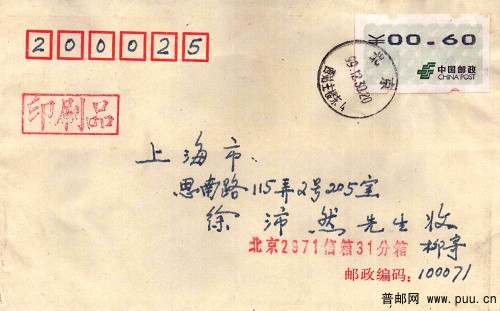 200025
¥00.60
中国邮政
CHINA POST
北京
99.12.30.20
印刷品
上海市
思南路115弄2号205室
徐沛然先生收
北京2971信箱31分箱 柳寄
邮政编码:100071
普邮网 www.puu.cn